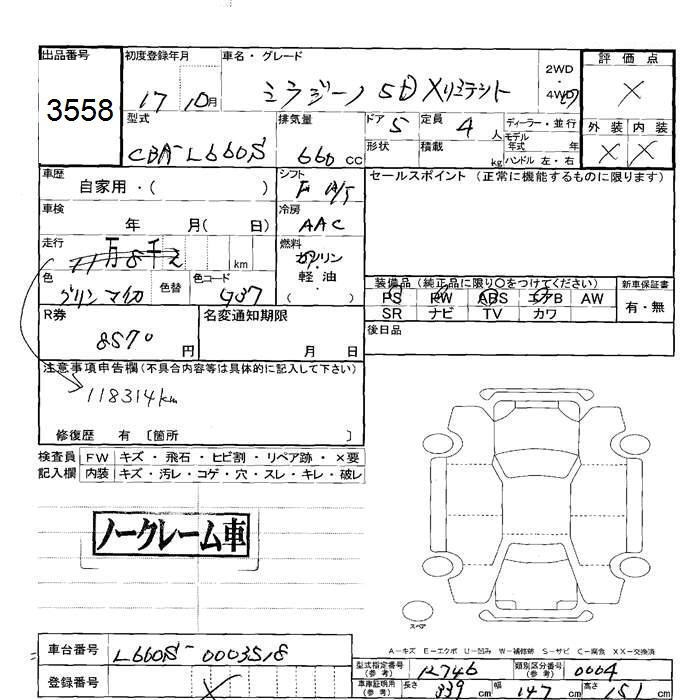 出品番号
3558
初度登録年月
17 10月
車名・グレード
ミラジーノ 5D X
2WD
4WD
評価点
×
外装 内装
× ×
型式
CBA-L660S
排気量
660 cc
ドア 5
形状
定員 4 人
積載 kg
ディーラー・並行
モデル
年式 年
ハンドル 左・右
車歴
自家用・( )
シフト
F A/5
セールスポイント (正常に機能するものに限ります)
車検
年 月( 日)
冷房
AAC
走行
11万8千 km
燃料
ガソリン
・
軽・油
( )
色
グリンマイカ
色替
色コード
G07
装備品 (純正品に限り○をつけてください)
PS PW ABS エアB AW
SR ナビ TV カワ
新車保証書
有・無
R券
8570 円
名変通知期限
月 日
後日品
注意事項申告欄 (不具合内容等は具体的に記入して下さい)
118314km
修復歴 有 〔箇所 〕
検査員 FW キズ・飛石・ヒビ割・リペア跡・×要
記入欄 内装 キズ・汚レ・コゲ・穴・スレ・キレ・破レ
ノークレーム車
スペア
A-キズ E-エクボ U-凹み W-補修跡 S-サビ C-腐食 XX-交換済
車台番号
L660S-0003518
登録番号
型式指定番号
(参考)
12746
類別区分番号
(参考)
0004
車庫証明用
(参考)
長さ 339 cm 幅 147 cm 高さ 151 cm